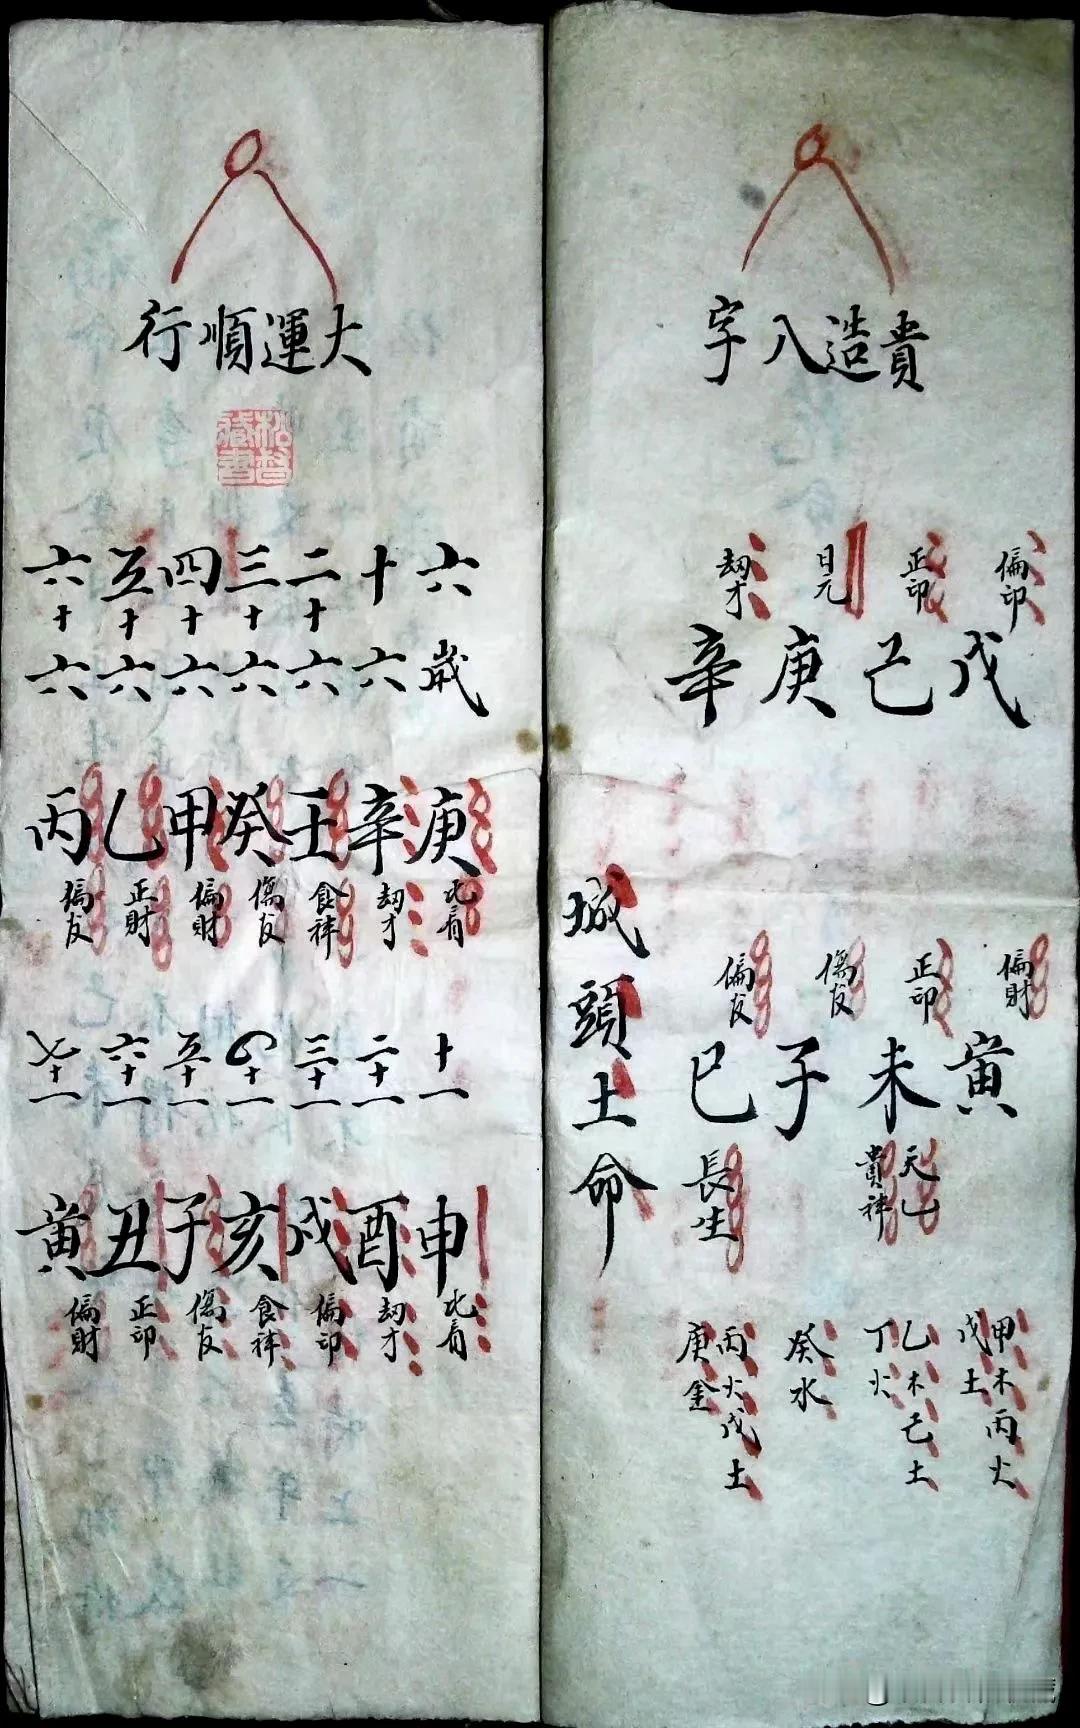 貴造八字
偏印 正印 日元 劫才
戊己庚辛
偏財 正印 傷官 偏官
寅未子巳
天乙貴神
長生
甲木丙火戊土
乙木己土丁火
癸水
丙火戊土庚金
城頭土命
大運順行
六歲
十六
二十六
三十六
四十六
五十六
六十六
庚辛壬癸甲乙丙
比肩 劫才 食神 傷官 偏財 正財 偏官
十一
二十一
三十一
四十一
五十一
六十一
七十一
申酉戌亥子丑寅
比肩 劫才 偏印 食神 傷官 正印 偏財